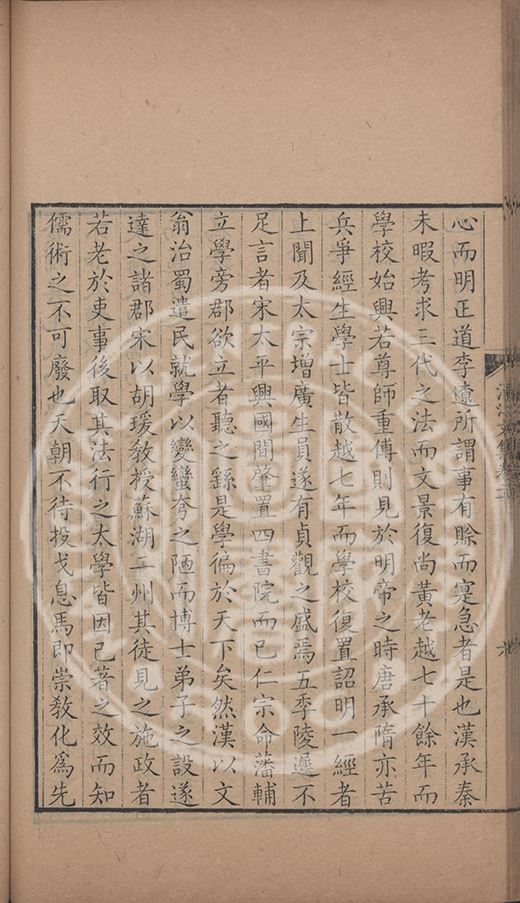 心而明正道李遼所謂事有賒而寔急者是也漢承秦
未暇考求三代之法而文景復尚黃老越七十餘年而
學校始興若尊師重傅則見於明帝之時唐承隋亦苦
兵爭經生學士皆散越七年而學校復置詔明一經者
上聞及太宗增廣生員遂有貞觀之盛焉五季陵遲不
足言者宋太平興國間肇置四書院而已仁宗命藩輔
立學旁郡欲立者聽之繇是學徧於天下矣然漢以文
翁治蜀遣民就學以變蠻夸之陋而博士弟子之設遂
達之諸郡宋以胡瑗敎授蘇湖二州其徒見之施政者
若老於吏事後取其法行之太學皆因已著之效而知
儒術之不可廢也天朝不待投戈息馬即崇敎化爲先